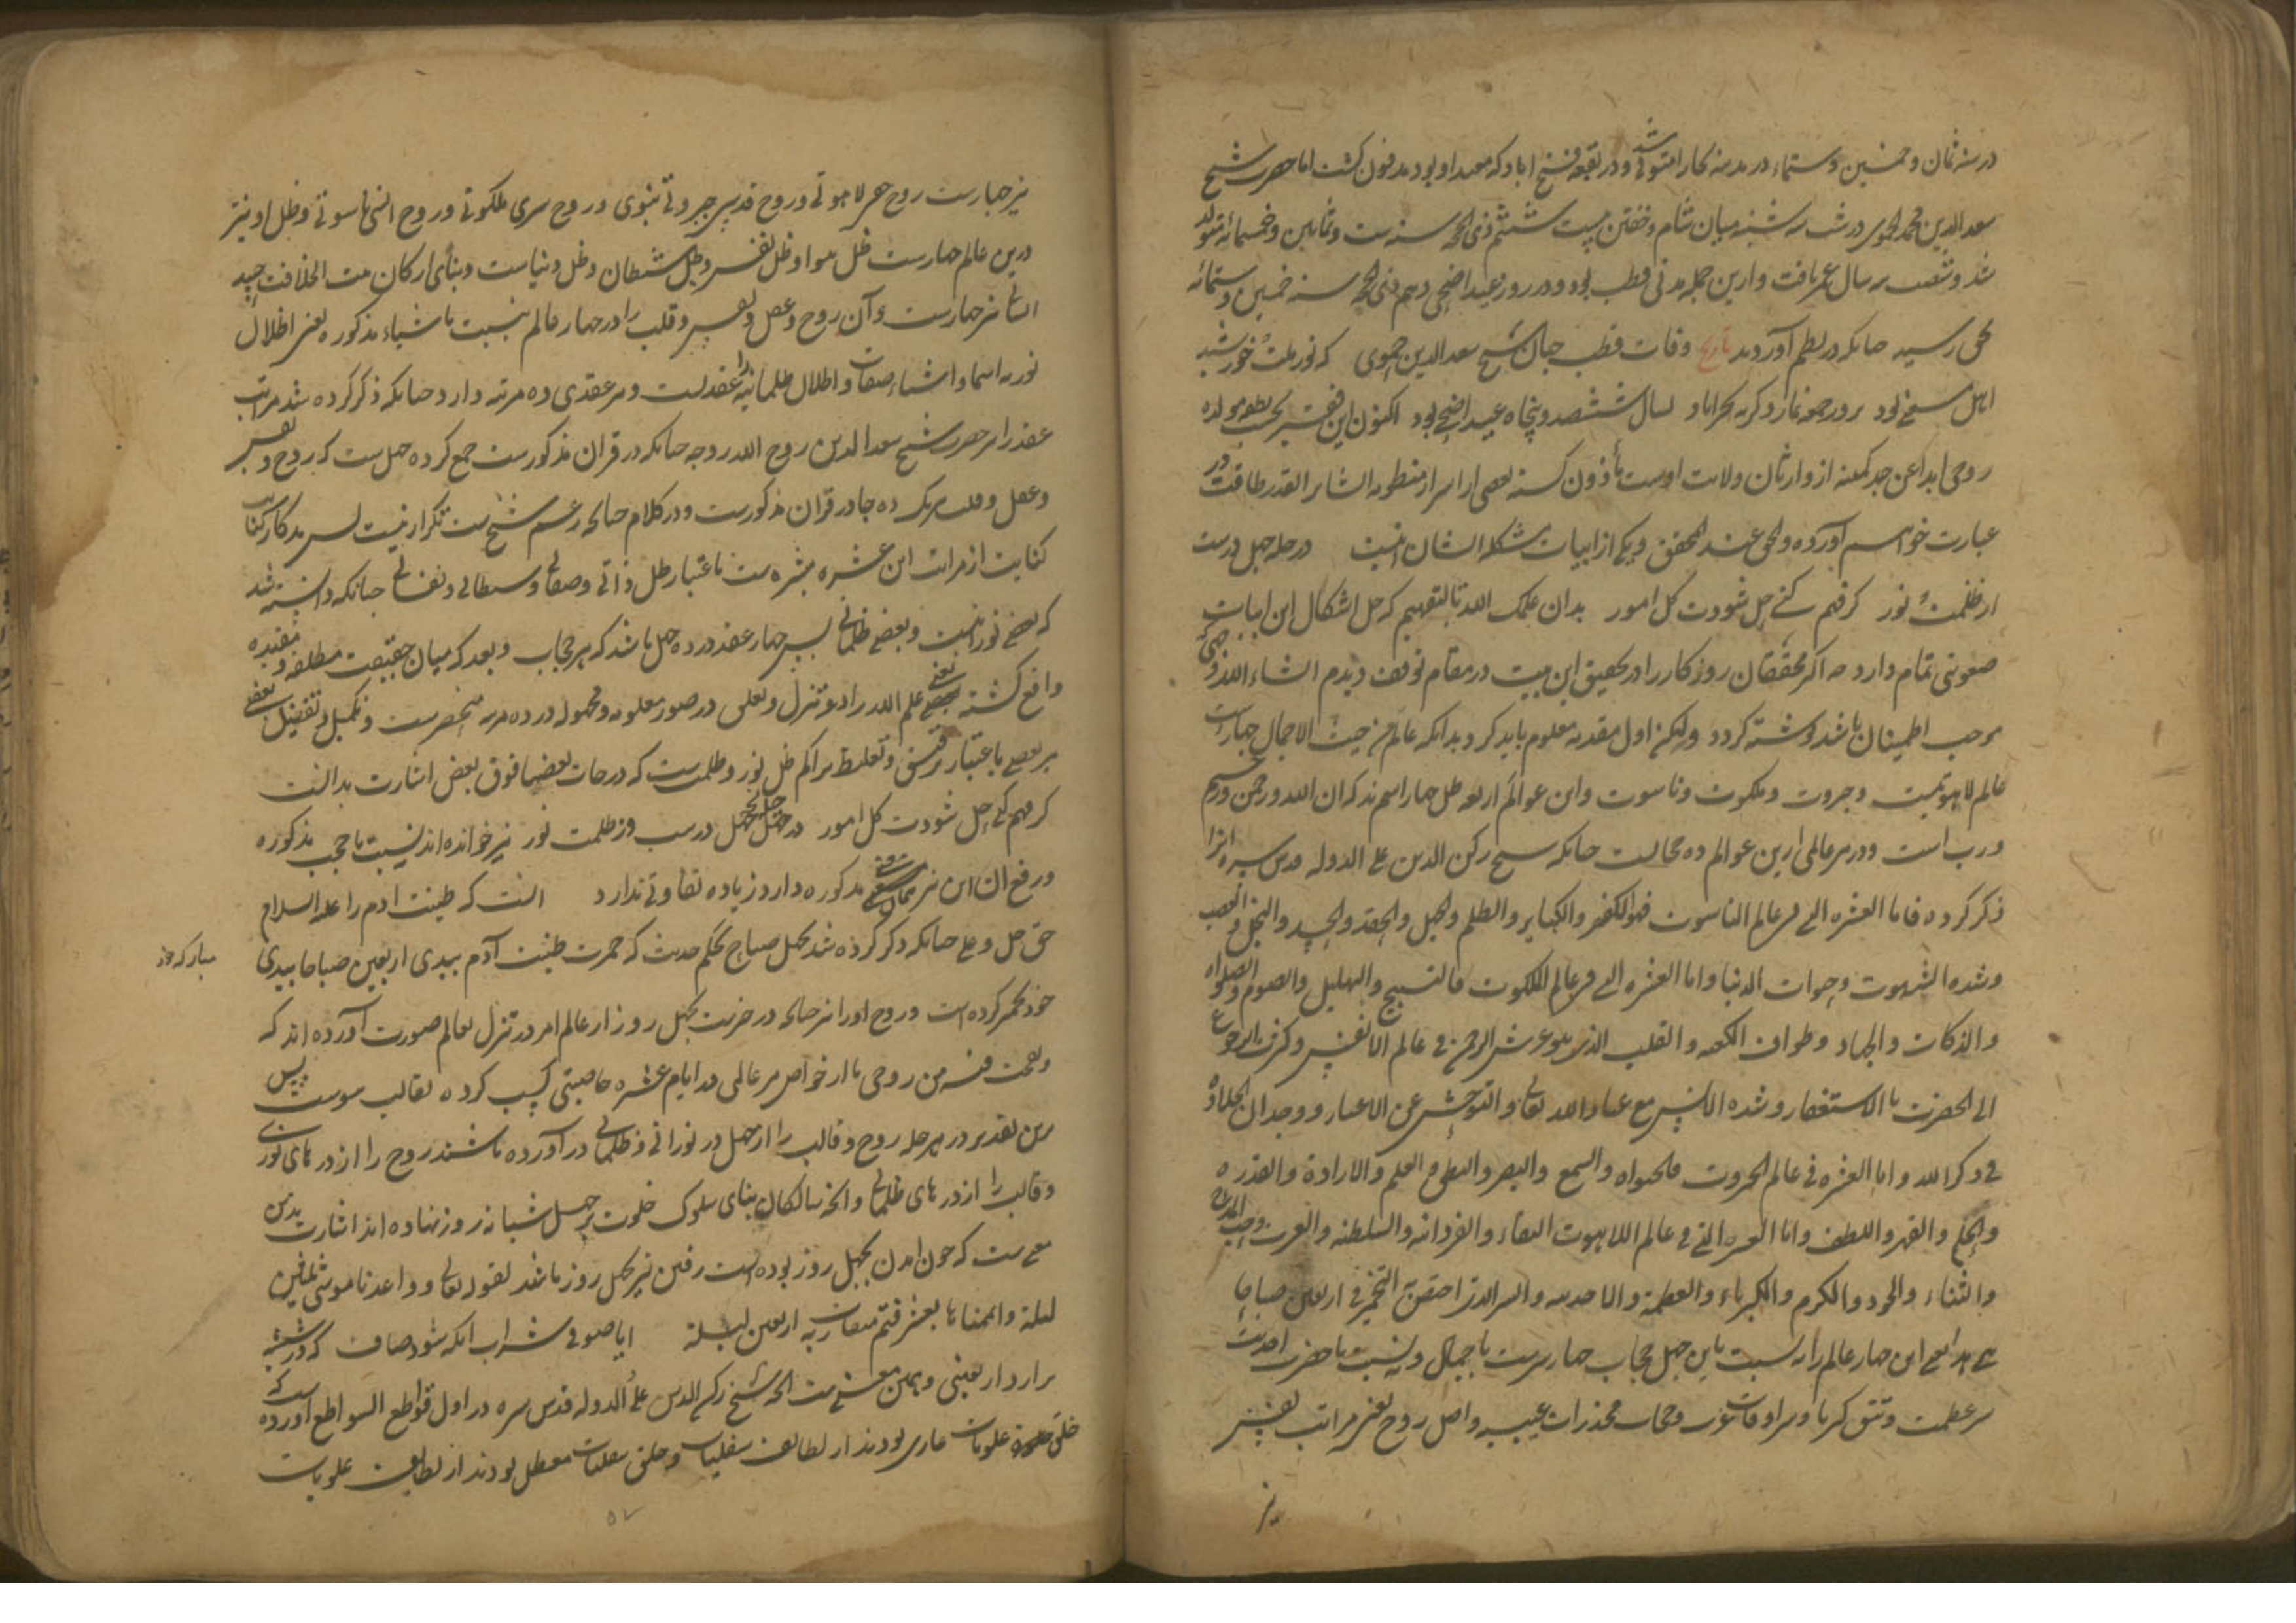 در سنه ثمان و خمسین و ستماء در مدینه بخارا متوفی شد و در بقعه فتح اباد که معبد او بود مدفون کشت اما حضرت شیخ
سعد الدین محمد الحموی در شب سه شنبه میان شام و خفتن بیست ششم ذی الحجه سنه ست و ثمانین و خمسمائه متولد
شد و شصت سه سال عمر یافت و ازین جمله مدتی قطب بود و در روز عید اضحی دهم ذی الحجه سنه خمسین و ستمائه
بحق رسید چنانکه در نظم آوردند تاریخ وفات قطب جهان شیخ سعد الدین حموی که نور ملت خورشید
اهل بود بروز جمعه نماز دکر ببحراباد بسال ششصد و پنجاه عید اضحی بود اکنون این فقیر
روحی ابدا عن جد کمینه از وارثان ولایت اوست مأذون کشته بعضی از اسرار منظومه ایشان بر القدر طاقت در
عبارت خواهیم آورد والحق عند المحقق و یکی از ابیات مشکله ایشان اینست در جمله چهل درست
از ظلمت و نور کر فهم کنی حل شودت کل امور بدان علمک الله تعالی بتفهیم که حل اشکال این ابیات
صعوبتی تمام دارد چه اکثر محققان روزکار را در تحقیق این بیت در مقام توقف دیدم انشاء الله
موجب اطمینان باشد نوشته کردد ولیکن اول مقدمه معلوم باید کرد بدانکه عالم من حیث الاجمال چهارست
عالم لاهوتیت و جبروت و ملکوت و ناسوت و این عوالم اربعه ظل چهار اسمند که ان الله و رحمن و رحیم
و رب است و در هر عالمی ازین عوالم ده حجابست چنانکه شیخ رکن الدین علاء الدوله قدس سره انرا
ذکر کرده فاما العشره التی فی عالم الناسوت فهو الکفر و الکبایر و الظلم و الجهل و الحقد و الحسد و البخل و العجب
و شده الشهوت و حیوات الدنیا و اما العشره التی فی عالم الملکوت فالتسبیح و التهلیل و الصوم و الصلواة
و الذکات و الجهاد و طواف الکعبه و القلب الذی هو عرش الرحمن فی عالم الانفس و کثرت الرجوع
الی الحضرت بالاستغفار و شده الانس مع عباد الله تعالی و التوحش عن الاغیار و وجدان الحلاوة
فی ذکر الله و اما العشره فی عالم الجبروت فالحیواة و السمع و البصر و النطق و العلم و الارادة و القدره
و الحلم و القهر و اللطف و اما العشره التی فی عالم اللاهوت البقاء و الفردانیه و السلطنه و العزت و حب المدح
و الثناء و الجود و الکرم و الکبریاء و العظمة و الاحدیه و السر الذی اختص التخمیر فی اربعین صباحا
بیدی این چهار عالم را نسبت باین چهل حجاب چهارست باجمال و نسبت با حضرت احدیت
سر عظمت و تتق کبریا و سرادقات و حجاب مخدرات غیبیه و اصل روح یعنی مراتب نفس
نیز
نیز چهارست روح لاهوتی و روح قدسی جبروتی نبوی و روح سری ملکوتی و روح انسی ناسوتی و ظل او نیز
درین عالم چهارست ظل هوا و ظل نفس و ظل شیطان و ظل دنیاست و بنای ارکان بیت الخلافت جسد
انسانی نیز چهارست و آن روح و عقل و نفس و قلب را در چهار عالم نسبت باشیاء مذکوره یعنی اظلال
نوریه اسما و اشیاء صفات و اظلال ظلمانیه عقدست و هر عقدی ده مرتبه دارد چنانکه ذکر کرده شد مراتب
عقد را هم حضرت شیخ سعد الدین روح الله روحه چنانکه در قران مذکورست جمع کرده چهل ست که روح و نفس
و عقل و قلب هر یک ده جا در قران مذکورست و در کلام چنانکه رسم شیخ ست تکرار نیست
کنایت از مراتب این عشره مبشره ست باعتبار ظل ذاتی و صفاتی و شیطانی و نفسانی چنانکه دانسته شد
که بعضی نورانیست و بعضی ظلمانی پس چهار عقد در ده چهل باشد که هر حجاب و بعد که میان حقیقت مطلقه و مقیده
واقع کشته یعنی علم الله را در تنزل و تعلی در صور معلومه و مجهوله در ده مرتبه منحصرست و تکمیل و تفضیل بعضی
بر بعضی باعتبار ترقیق و تغلیظ تراکم ظل نور و ظلمت ست که درجات بعضها فوق بعض اشارت بدانست
کر فهم کنی حل شودت کل امور در جمله چهل درست وز ظلمت نور نیز خوانده اند نسبت با حجب مذکوره
و رفع ان این نیز همان معنی مذکوره دارد زیاده تفاوتی ندارد انست که طینت ادم را علیه السلام
حق جل و علا چنانکه ذکر کرده شد بچهل صباح بحکم حدیث که خمرت طینت آدم بیدی اربعین صباحا بیدی
مبارکه خود
خود مخمر کرده است و روح او را نیز چنانکه در خبرست بچهل روز از عالم امر در تنزل بعالم صورت آورده اند که
و نفخت فیه من روحی تا از خواص هر عالمی در ایام عشره خاصیتی کسب کرده بقالب پیوست پس
برین تقدیر در هر حله روح و قالب را از چهل در نورانی و ظلمانی در آورده باشند روح را از در های نوری
و قالب را از در های ظلمانی و انچه سالکان بنای سلوک خلوت بر چهل شبانه روز نهاده اند اشارت بدین
معنی ست که چون امدن بچهل روز بوده است رفتن نیز بچهل روز باشد لقوله تعالی و واعدنا موسی ثلثین
لیلة و اتممناها بعشر فتم میقات ربه اربعین لیلة ایا صوفی شراب انکه شود صاف که در شیشه
برارد اربعینی و همین معنی ست انچه شیخ رکن الدین علاء الدوله قدس سره در اول قواطع السواطع آورده ست که
خلق علویات عاری بودند از لطائف سفلیات و خلق سفلیات معطل بودند از لطایف علویات
۵۲